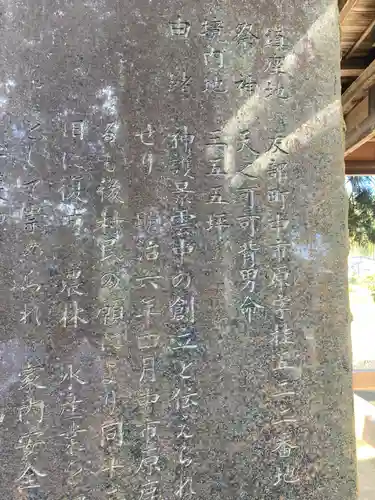 鎮座地 友部町中市原字柱五二二番地
祭神 天之可可背男命
境内地 三五五坪
由緒 神護景雲中の創立と伝えられ
せり 明治六年四月中市原
るも後村民の願により同十
旧に復す 農林 水産業を
として崇められ 家内安全